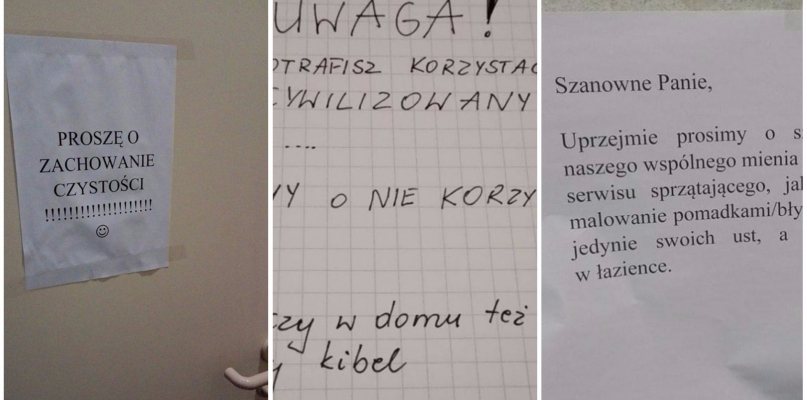 PROSZĘ O
ZACHOWANIE
CZYSTOŚCI
!!!!!!!!!!!!!!!!!!!!
☺
UWAGA!
OTRAFISZ KORZYSTAĆ
CYWILIZOWANY
....
NY O NIE KORZY
czy w domu też
kibel
Szanowne Panie,
Uprzejmie prosimy o s
naszego wspólnego mienia
serwisu sprzątającego, jak
malowanie pomadkami/bły
jedynie swoich ust, a
w łazience.